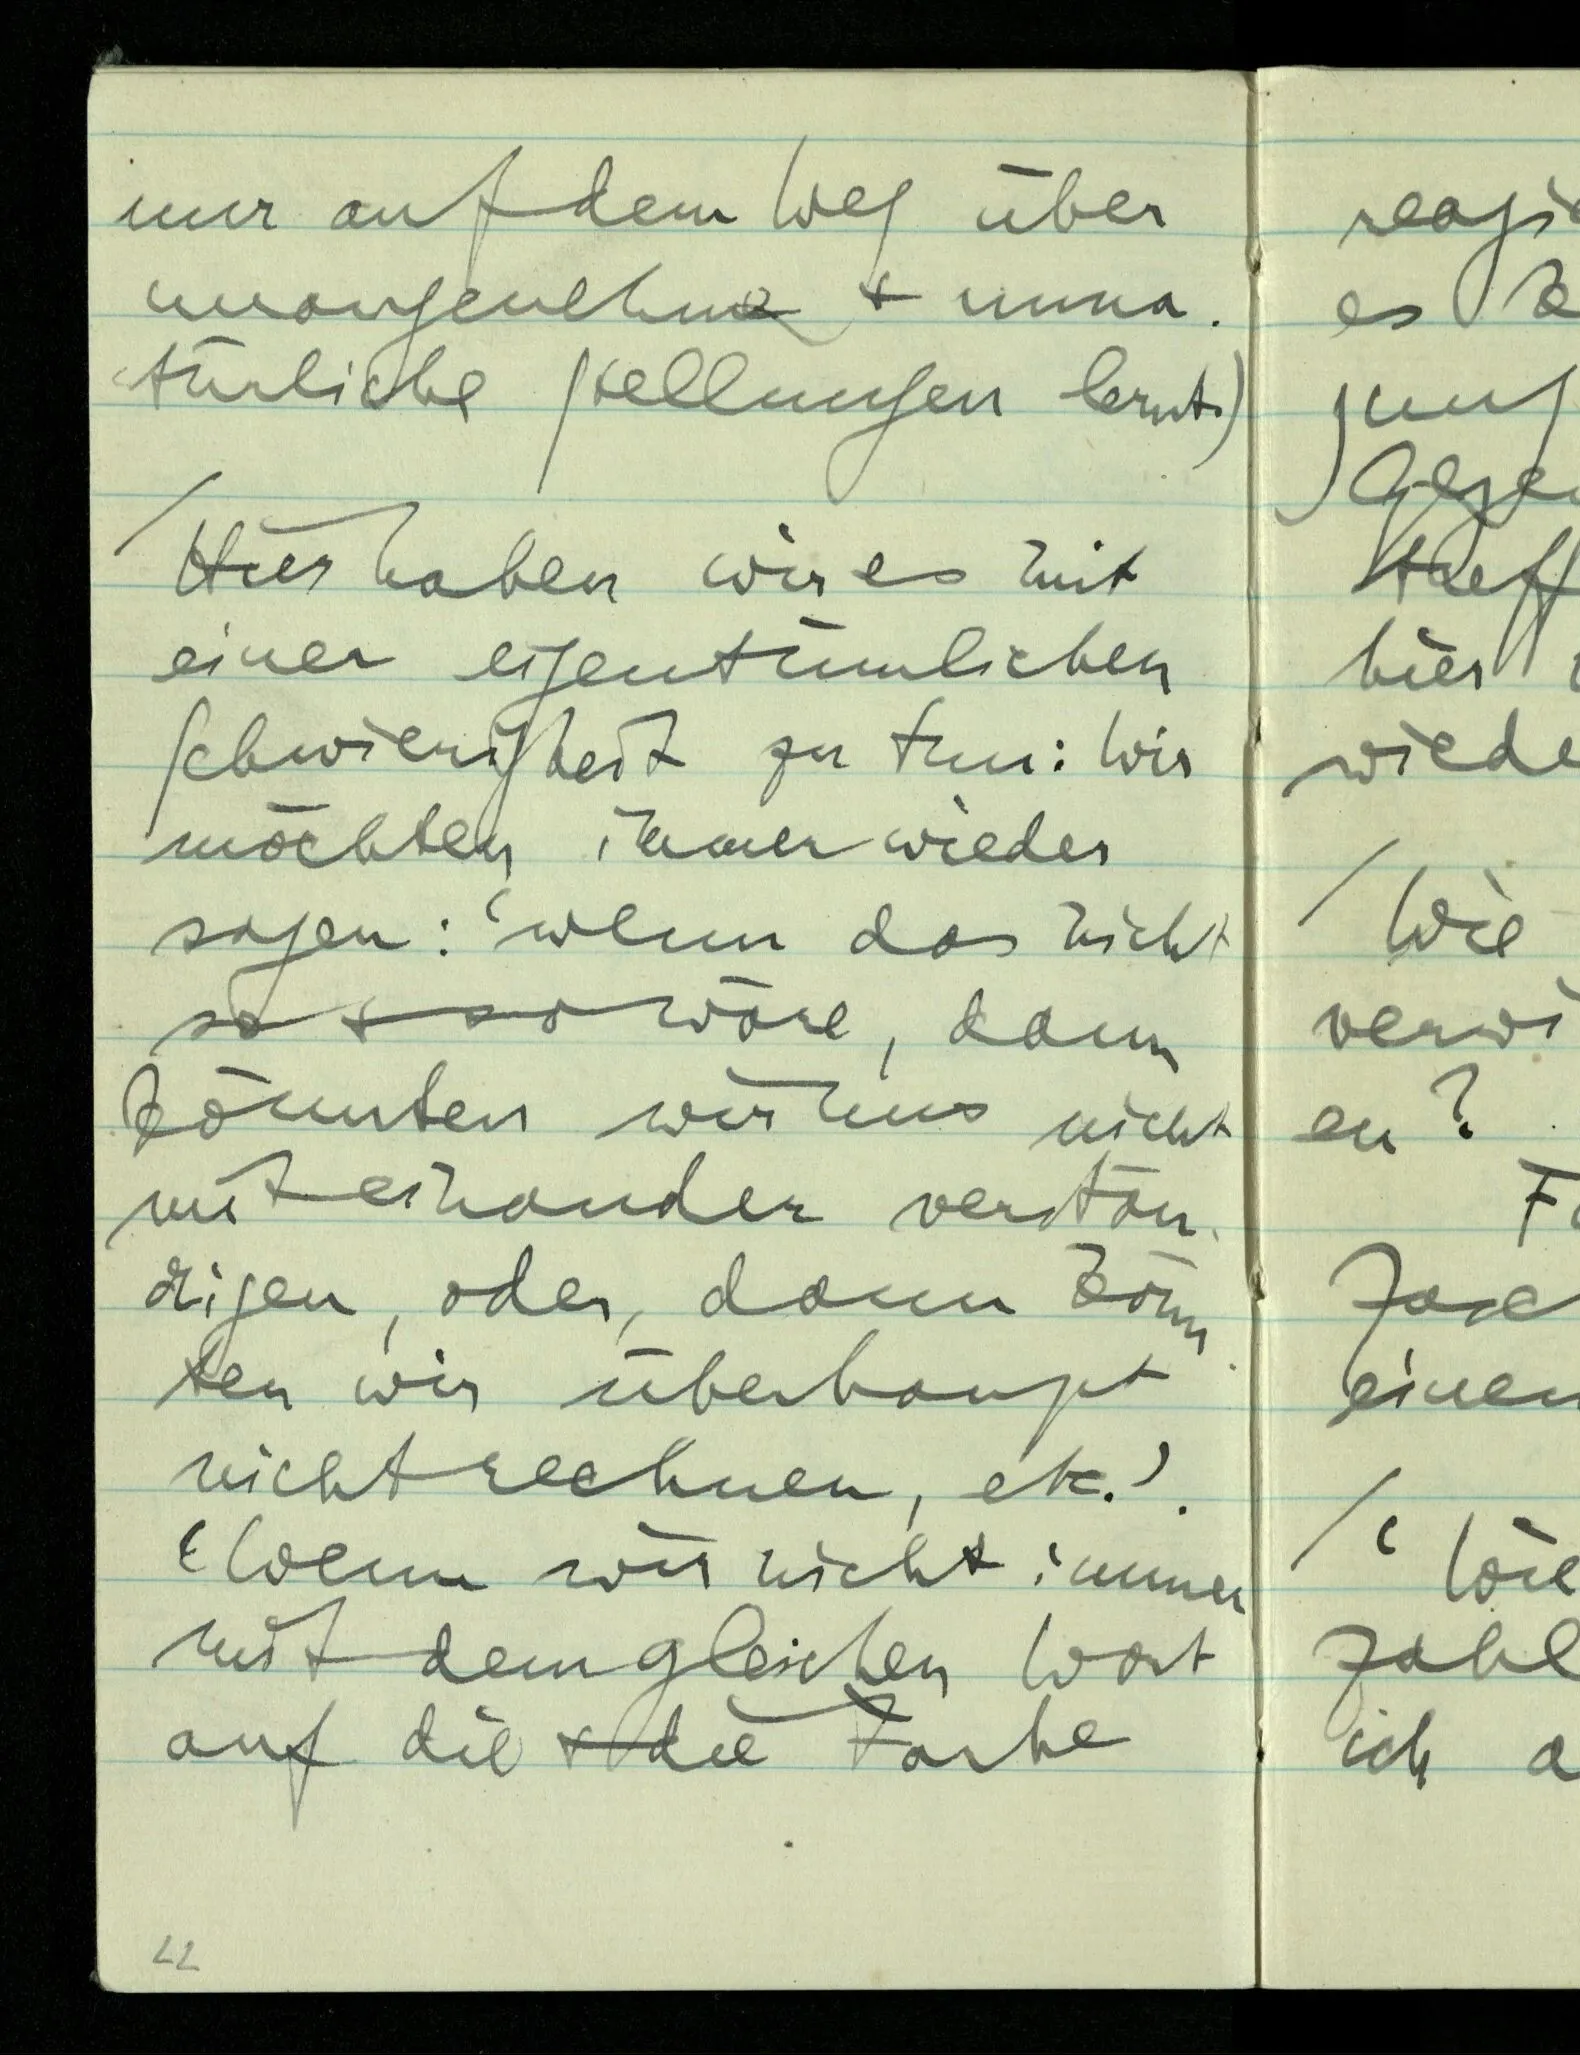 nur auf dem Weg über
unangenehme + unna-
türliche Stellungen lernt.)
/ Hier haben wir es mit
einer eigentümlichen
Schwierigkeit zu tun: Wir
möchten immer wieder
sagen: ‘wenn das nicht
so + so wäre, dann
könnten wir uns nicht
mit einander verstän-
digen, oder, dann könn-
ten wir überhaupt
nicht rechnen, etc.’.
‘Wenn wir nicht immer
mit dem gleichen Wort
auf die + die Farbe
22
es
hier
/ Wie
en?
einen
/ ‘Wie
ich a